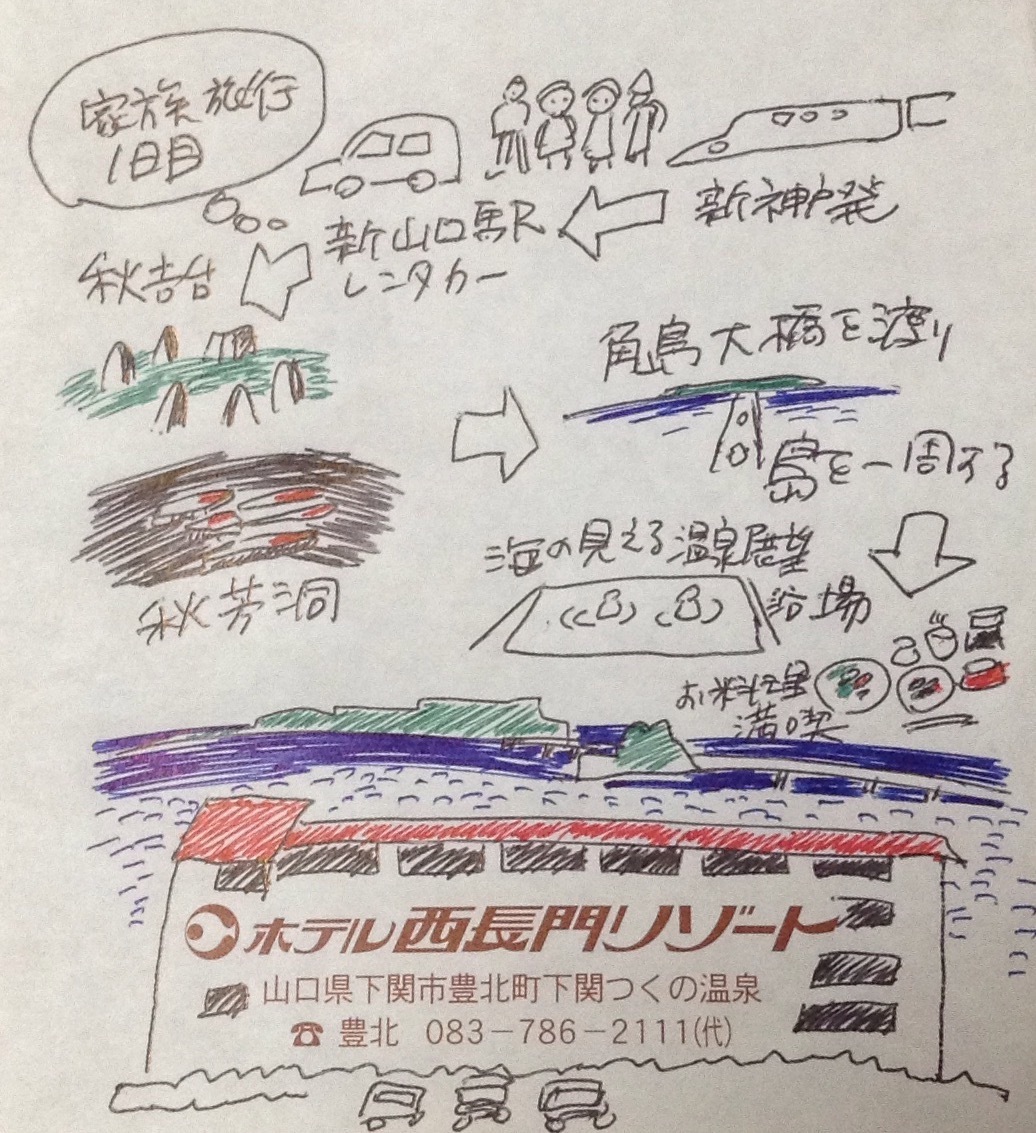 家族旅行
1日目
新神戸発
新山口駅
レンタカー
秋吉台
秋芳洞
角島大橋を渡り
島を一周する
海の見える温泉展望
浴場
お料理
満喫
ホテル西長門リゾート
山口県下関市豊北町下関つくの温泉
☎ 豊北 083-786-2111(代)